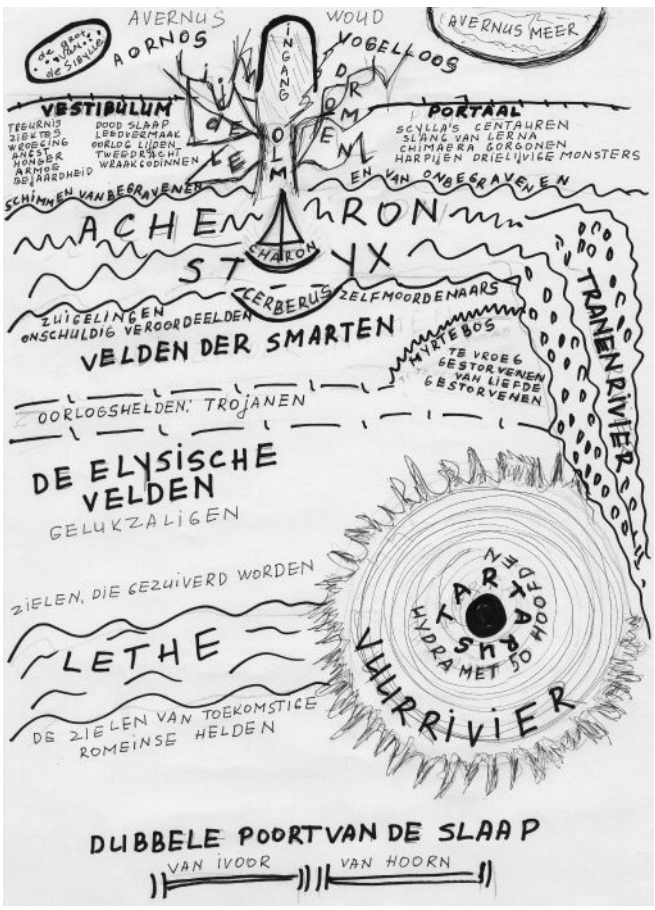 AVERNUS WOUD
AVERNUS MEER
de grot
van
de SIBYLLE
AORNOS
VOGELLOOS
INGANG
ijdele
DROMEN
OLM
VESTIBULUM
TREURNIS
ZIEKTES
WROEGING
ANGST
HONGER
ARMOE
BEJAARDHEID
DOOD SLAAP
LEEDVERMAAK
OORLOG LIJDEN
TWEEDRACHT
WRAAKGODINNEN
PORTAAL
SCYLLA'S CENTAUREN
SLANG VAN LERNA
CHIMAERA GORGONEN
HARPIJEN DRIELIJVIGE MONSTERS
SCHIMMEN VAN BEGRAVENEN
EN VAN ONBEGRAVENEN
ACHERON
CHARON
STYX
CERBERUS
ZUIGELINGEN
ONSCHULDIG VEROORDEELDEN
ZELFMOORDENAARS
VELDEN DER SMARTEN
MYRTEBOS
TE VROEG
GESTORVENEN
VAN LIEFDE
GESTORVENEN
TRANENRIVIER
OORLOGSHELDEN: TROJANEN
DE ELYSISCHE
VELDEN
GELUKZALIGEN
ZIELEN, DIE GEZUIVERD WORDEN
TARTARUS
HYDRA MET 50 HOOFDEN
VUURRIVIER
LETHE
DE ZIELEN VAN TOEKOMSTIGE
ROMEINSE HELDEN
DUBBELE POORT VAN DE SLAAP
VAN IVOOR
VAN HOORN